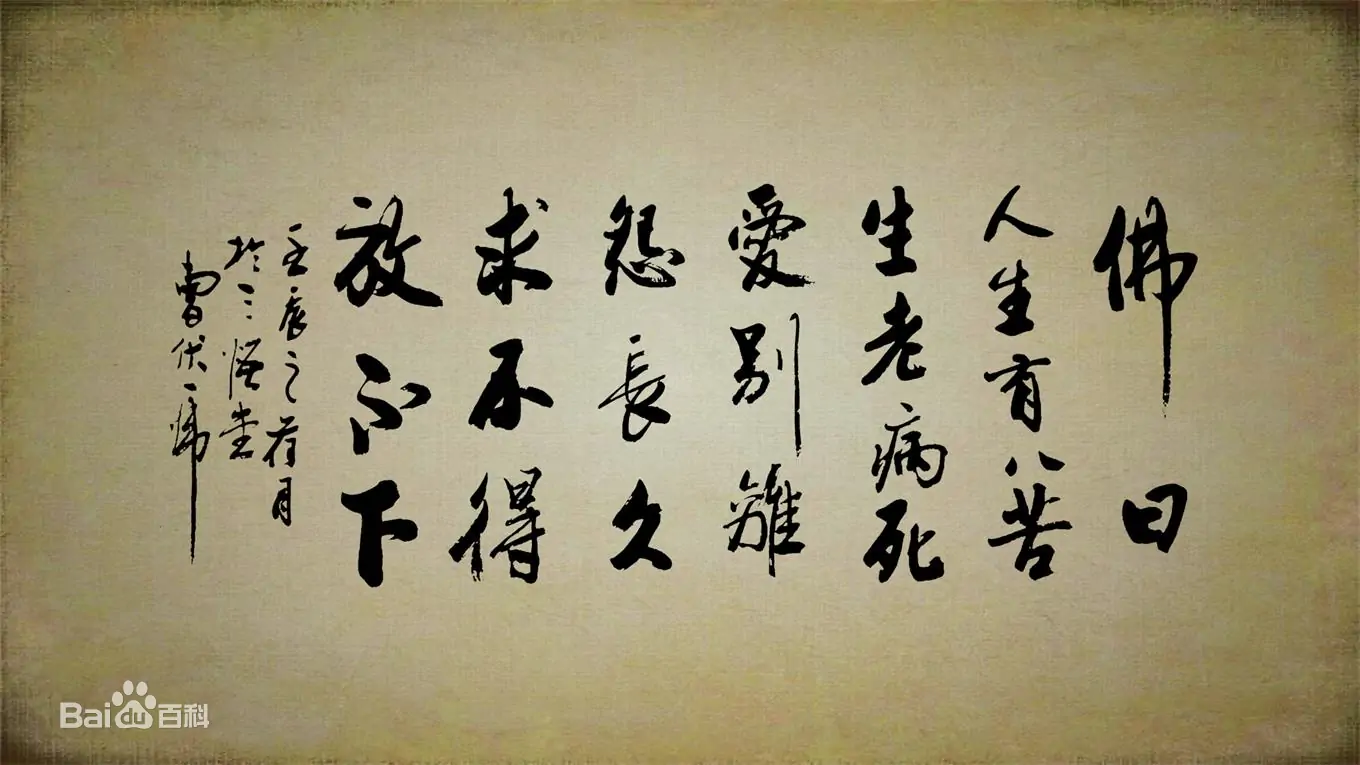 佛曰
人生有八苦
生老病死
愛別離
怨長久
求不得
放不下
壬辰之荷月
於三悟堂
曹伏一
Bai du 百科